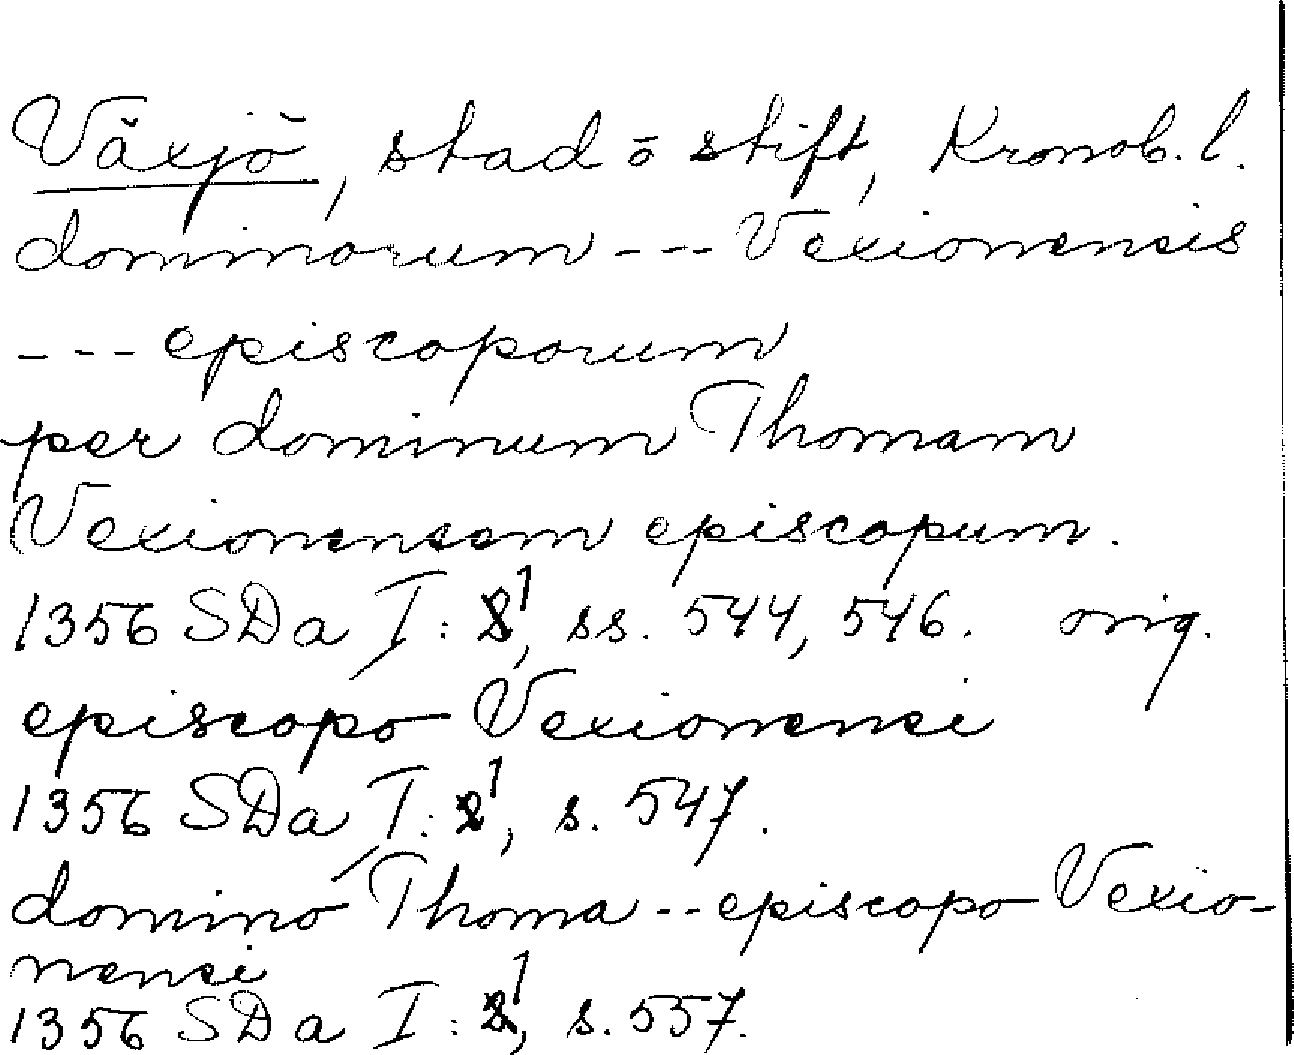 Växjö, stad o stift, Kronob. l.
dominorum --- Vexionensis
--- episcoporum
per dominum Thomam
Vexionensem episcopum.
1356 SDa I: 1, ss. 544, 546. orig.
episcopo Vexionensi
1356 SDa I: 1, s. 547.
domino Thoma -- episcopo Vexio-
nensi
1356 SDa I: 1, s. 557.